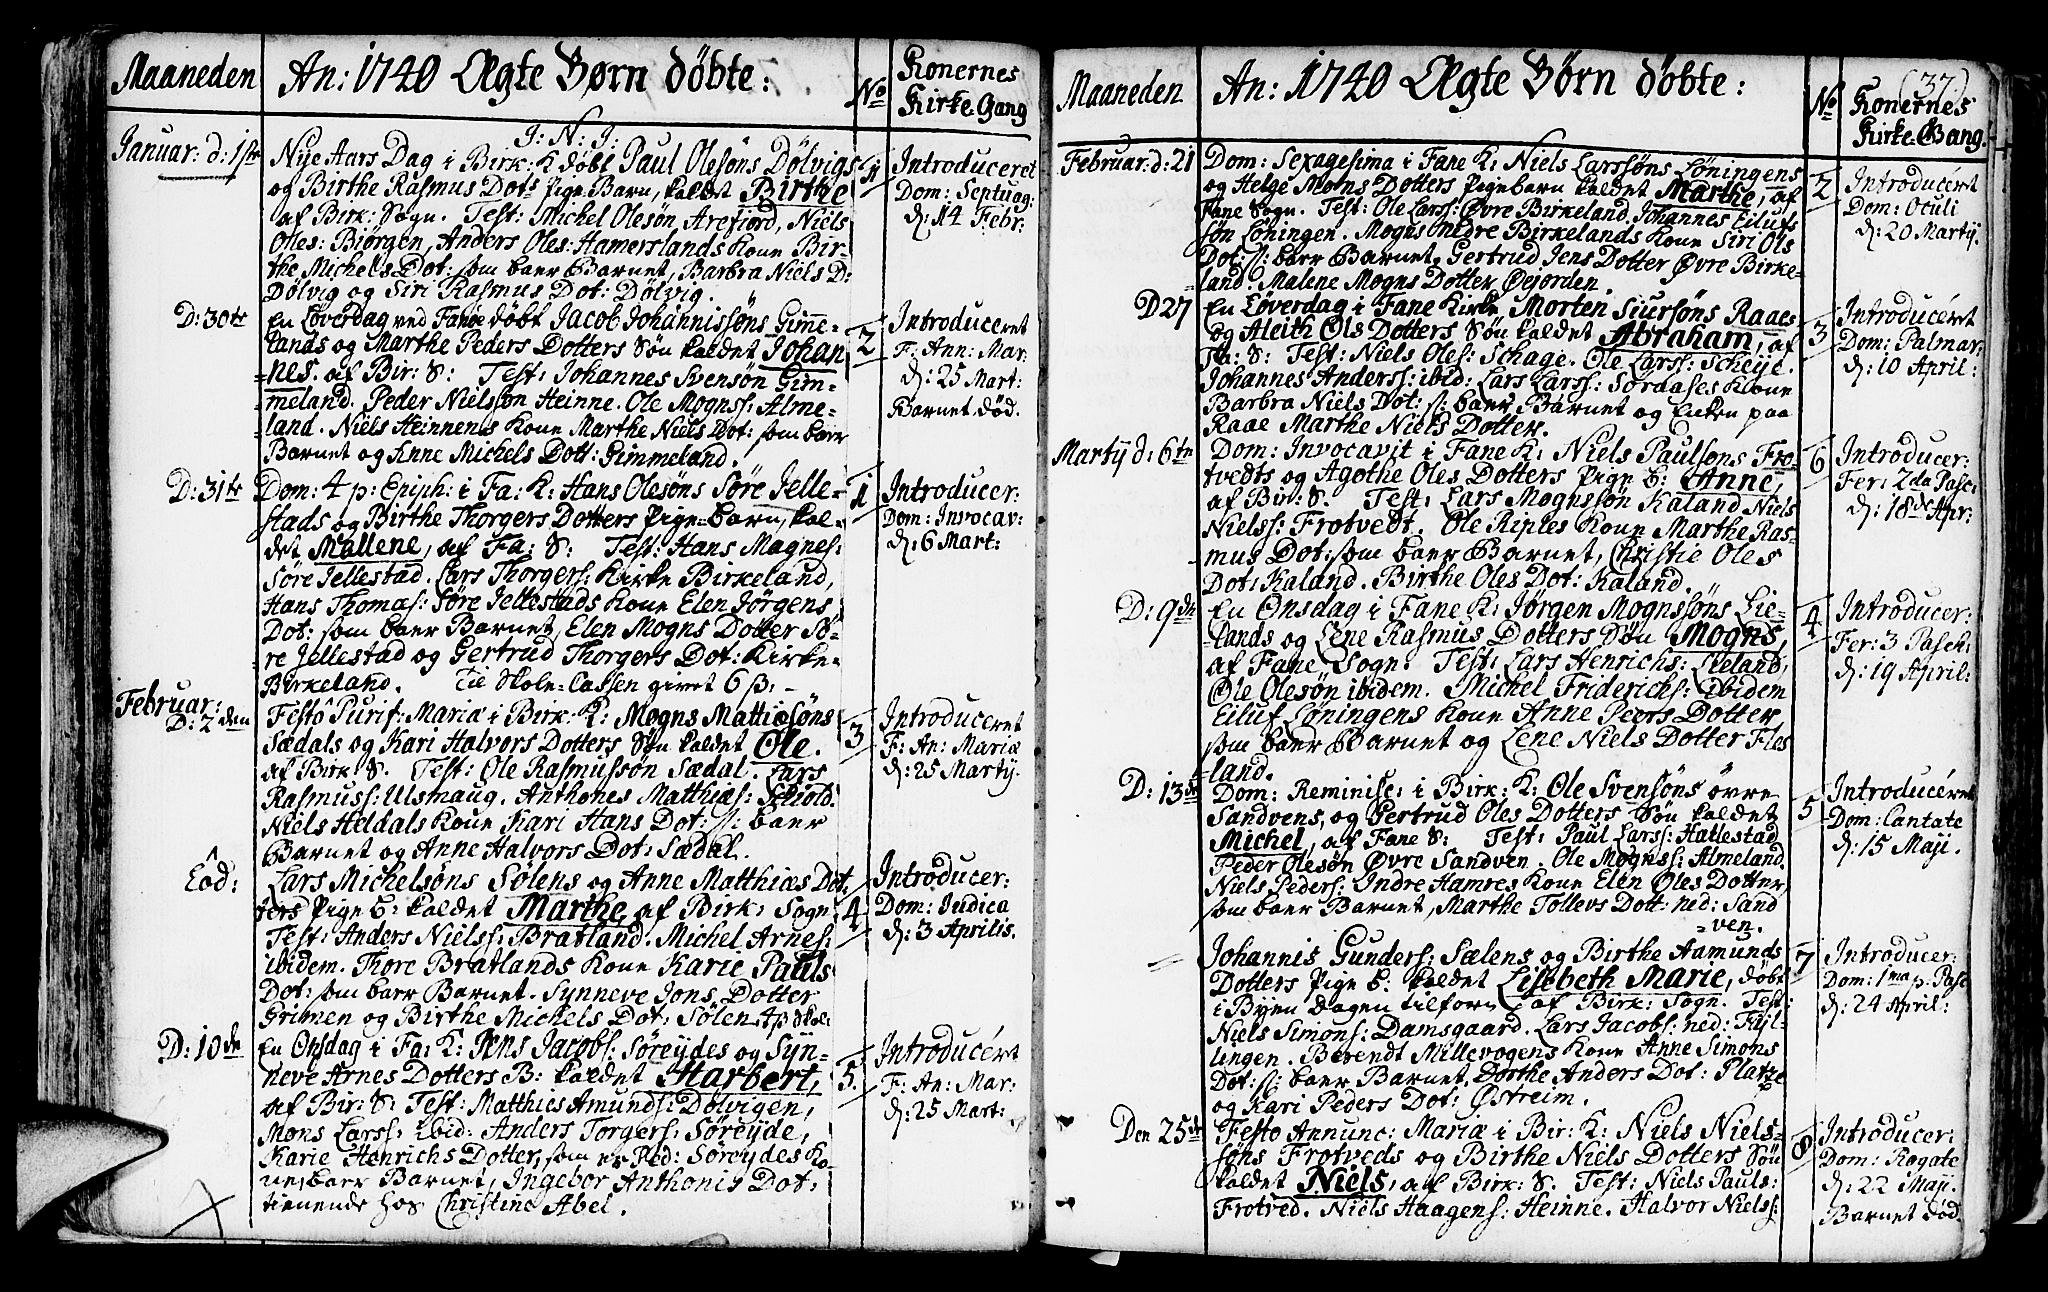 Maaneden
An: 1740 Ægte Børn døbte:
No
Konernes
Kirke-Gang
J: N: J:
Januar: d: 1ste
Nye Aars Dag i Birk: K døbt Paul Olesøns Dølvigs
og Birthe Rasmus Dots Pige-Barn, kaldet Birthe
af Birk: Sogn. Test: Michel Olesøn, Arefiord, Niels
Oles: Biørgen, Anders Oles: Hamerslands Kone Bir-
the Michels Dot: som baer Barnet, Barbra Niels D:
Dølvig og Siri Rasmus Dot: Dølvig.
1
Introduceret
Dom: Septuag:
d: 14 Febr:
D: 30te
En Løverdag ved Fanøe døbt Jacob Johannissøns Gimme-
lands og Marthe Peders Dotters Søn kaldet Johan
=nes. af Bir: S: Test: Johannes Svensøn Gim-
=meland. Peder Nielssøn Heinne. Ole Mognss: Alme-
=land. Niels Heinnens Kone Marthe Niels Dot: som baer
Barnet og Anne Michels Dott: Gimmeland.
2
Introduceret
F: Ann: Mar:
d: 25 Mart:
Barnet død.
D: 31te
Dom: 4 p: Epiph: i Fa: K: Hans Olesøns Søre Jelle-
stads og Birthe Thorgers Dotters Pige-barn, kal-
det Mallene, af Fa: S: Test: Hans Magnes:
Søre Jellestad. Lars Thorgers: Kirke Birkeland,
Hans Thomæs: Søre Jellestads Kone Elen Jørgens
Dot: som baer Barnet, Elen Mogns Dotter Sø-
re Jellestad og Gertrud Thorgers Dot: Kirke-
Birkeland. Til Skole-Cassen givet 6 ß. -
1
Introducer:
Dom: Invocav:
d: 6 Mart:
Februar:
D: 2den
Festô Purif: Mariæ i Birk: K: Mogns Mattiesøns
Sædals og Kari Halvors Dotters Søn kaldet Ole.
af Birk: S. Test: Ole Rasmussøn Sædal. Lars
Rasmuss: Ulsmaug. Anthones Matthiæs: Skiold.
Niels Heldals Kone Kari Hans Dot: s: baer
Barnet og Anne Halvors Dot: Sædal.
3
Introduceret
F: An: Mariæ
d: 25 Martij.
Eod:
Lars Michelsøns Sølens og Anne Matthiæs Dot:
ters Pige B: kaldet Marthe, af Birk: Sogn
Test: Anders Nielss: Bratland. Michel Arnes:
ibidem. Thore Bratlands Kone Karie Pauls
Dot: som baer Barnet. Synneve Jons Dotter
Grimen og Birthe Michels Dot: Sølen. 4ß Skol:
4
Introducer:
Dom: Judica
d: 3 Aprilis.
D: 10de
En Onsdag i Fa: K: Jens Jacobs: Søreydes og Syn-
neve Arnes Dotters B: kaldet Harbert,
af Bir: S: Test: Matthies Amunds: Dølvigen,
Møns Larss: ibid: Anders Torgers: Søreyde,
Karie Henrichs Dotter, som er Ped: Søreydes Ko-
ne, baer Barnet, Ingebor Anthonis Dot:
tienende hos Christine Abel.
5
Introducéret
F: An: Mar:
d: 25 Mart:
Maaneden
An: 1740 Ægte Børn døbte:
No
(37.)
Konernes
Kirke-Gang.
Februar: d: 21
Dom: Sexagesima i Fane K: Niels Larssøns Løningens
og Helge Mons Dotters Pigebarn kaldet Marthe, af
Fane Sogn. Test: Ole Larss: Øvre Birkeland. Johannes Eilufs
søn Løningen. Mogns Nedre Birkelands Kone Siri Ols
Dot: s: baer Barnet, Gertrud Jens Dotter Øvre Birke-
land. Malene Mogns Dotter Øejorden.
2
Introducéret
Dom: Oculi
d: 20 Martij.
D 27
En Løverdag i Fane Kirke Morten Siursøns Raaes
og Aleith Ols Dotters Søn kaldet Abraham, af
Fa: S: Test: Niels Oles: Schage. Ole Larss: Scheije.
Johannes Anderss: ibid: Lars Larss: Sørdases Kone
Barbra Niels Dot: s: baer Barnet og Enken paa
Raae Marthe Niels Dotter.
3
Introducéret
Dom: Palmar:
d: 10 April:
Martij d: 6te
Dom: Invocavit i Fane K: Niels Paulsøns Fro-
tvedts og Agothe Oles Dotters Pige B: Anne,
af Bir: S. Test: Lars Mognssøn Kaland Niels
Nielss: Frotvedt. Ole Riples Kone Marthe Ras-
mus Dot: som baer Barnet, Christie Oles
Dot: Kaland. Birthe Oles Dot: Kaland.
6
Introducer:
Fer: 2da Pasc:
d: 18de Apr:
D: 9de
En Onsdag i Fane K: Jørgen Mognssøns Lie-
lands og Lene Rasmus Dotters Søn Mogns,
af Fane Sogn. Test: Lars Henrichs: Lieland,
Ole Olesøn ibidem. Michel Friderichs: ibidem
Eiluf Løningens Kone Anne Peers Dotter,
som baer Barnet og Lene Niels Dotter Fles
land.
4
Introducer:
Fer: 3 Pasch:
d: 19 April:
D: 13de
Dom: Reminisc: i Birk: K: Ole Svensøns øvre
Sandvens, og Gertrud Oles Dotters Søn kaldet
Michel, af Fane S: Test: Paul Larss: Hatlestad
Peder Olesøn Øvre Sandven. Ole Mognss: Almeland.
Niels Peders: Indre Hamres Kone Elen Oles Dotter,
som baer Barnet, Marthe Tollevs Dott: ned: Sand
=ven.
5
Introducéret
Dom: Cantate
d: 15 Maji.
=
Johannis Gunders: Sælens og Birthe Aamunds
Dotters Pige B: kaldet Lisebeth Marie, døbt
i Byen dagen tilforn, af Birk: Sogn. Test:
Niels Simons: Damsgaard. Lars Jacobs: ned: Fyl-
lingen. Berendt Millevogens Kone Anne Simons
Dot: s: baer Barnet, Dorthe Anders Dot: Platze
og Kari Peders Dot: Østreim.
7
Introducer:
Dom: 1ma p: Pasc
d: 24 April:
Den 25de
Festo Annunc: Mariæ i Bir: K: Niels Niels-
søns Frotveds og Birthe Niels Dotters Søn
kaldet Niels, af Birk: S. Test: Niels Pauls:
Frotved. Niels Haagens: Heinne. Halvor Nielss:
8
Introducer:
Dom: Rogate
d: 22 Maji.
Barnet død.